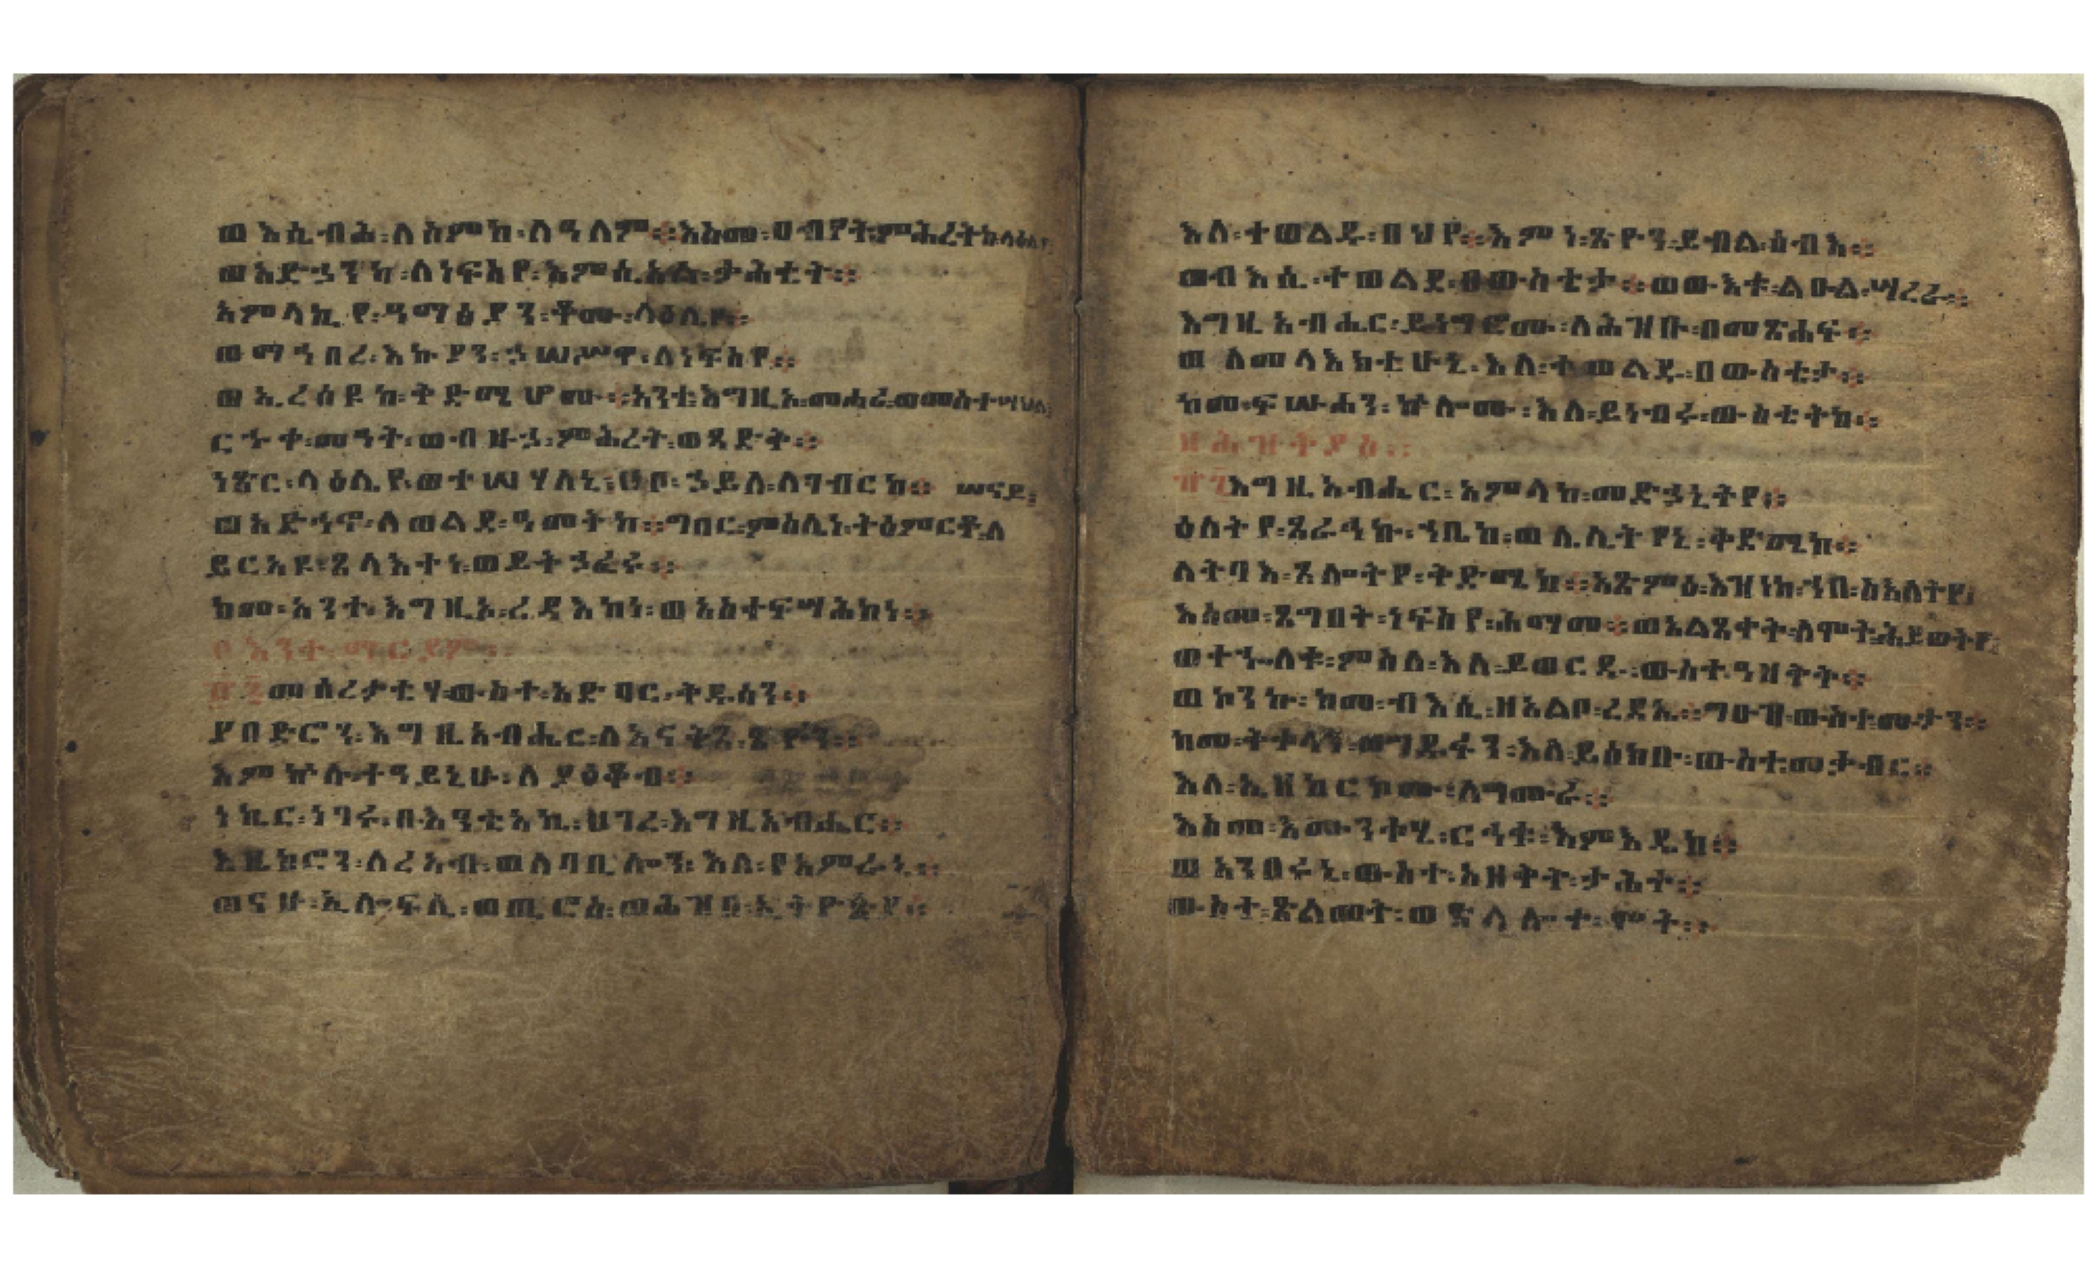 ወእሴብሕ፡ለስምከ፡ለዓለም። እስመ፡ዐብየት፡ምሕረትከ፡ላዕሌየ፡
ወአድኃንካ፡ለነፍስየ፡እምሲኦል፡ታሕቲት።
አምላኪየ፡ዓማፅያን፡ቆሙ፡ላዕሌየ።
ወማኅበረ፡እኩያን፡ኃሠሥዋ፡ለነፍስየ።
ወኢረሰዩከ፡ቅድሜሆሙ። አንተ፡እግዚኦ፡መሐሪ፡ወመስተሣህል፡
ርኁቀ፡መዓት፡ወብዙኃ፡ምሕረት፡ወጻድቅ።
ነጽር፡ላዕሌየ፡ወተሣሃለኒ፡ሀቦ፡ኃይለ፡ለገብርከ። ሠናይ፡
ወአድኅኖ፡ለወልደ፡ዓመትከ። ግበር፡ምስሌነ፡ትእምርተ፡ለ
ይርአዩ፡ጸላእትነ፡ወይትኃፈሩ።
ከመ፡አንተ፡እግዚኦ፡ረዳእከነ፡ወአስተፍሣሕከነ።
በእንተ፡ማርያም።
፹፮ መሰረታቲሃ፡ውስተ፡አድባር፡ቅዱሳን።
ያበድሮን፡እግዚአብሔር፡ለአናቅጸ፡ጽዮን።
እምኵሉ፡ተዓይኒሁ፡ለያዕቆብ።
ነኪር፡ነገሩ፡በእንቲአኪ፡ሀገረ፡እግዚአብሔር።
እዜከሮን፡ለረአብ፡ወለባቢሎን፡እለ፡የአምራኒ።
ወናሁ፡ኢሎፍሊ፡ወጢሮስ፡ወሕዝበ፡ኢትዮጵያ።
እለ፡ተወልዱ፡በህየ። እምነ፡ጽዮን፡ይብል፡ሰብእ።
ወብእሲ፡ተወልደ፡በውስቴታ። ወውእቱ፡ልዑል፡ሣረራ።
እግዚአብሔር፡ይነግሮሙ፡ለሕዝቡ፡በመጽሐፍ።
ወለመላእክቲሁኒ፡እለ፡ተወልዱ፡በውስቴታ።
ከመ፡ፍሡሓን፡ኵሎሙ፡እለ፡ይነብሩ፡ውስቴትኪ።
ዘሕዝቅያስ።
፹፯ እግዚአብሔር፡አምላከ፡መድኃኒትየ።
ዕለትየ፡ጸራኅኩ፡ኀቤከ፡ወሌሊትየኒ፡ቅድሜከ።
ለትባእ፡ጸሎትየ፡ቅድሜከ። አጽምዕ፡እዝነከ፡ኀበ፡ስእለትየ፡
እስመ፡ጸግበት፡ነፍስየ፡ሕማመ። ወአልጸቀት፡ለሞት፡ሕይወትየ፡
ወተኈለቁ፡ምስለ፡እለ፡ይወርዱ፡ውስተ፡ዓዘቅት።
ወኮንኩ፡ከመ፡ብእሲ፡ዘአልቦ፡ረዳኢ። ግዑዝ፡ውስተ፡ሙታን።
ከመ፡ቅቱላን፡ወግዱፋን፡እለ፡ይሰክቡ፡ውስተ፡መቃብር።
እለ፡ኢዘከርኮሙ፡ለግሙራ።
እስመ፡እሙንቱሂ፡ርኅቁ፡እምእዴከ።
ወአንበሩኒ፡ውስተ፡አዘቅት፡ታሕተ።
ውስተ፡ጽልመት፡ወጽላሎተ፡ሞት።